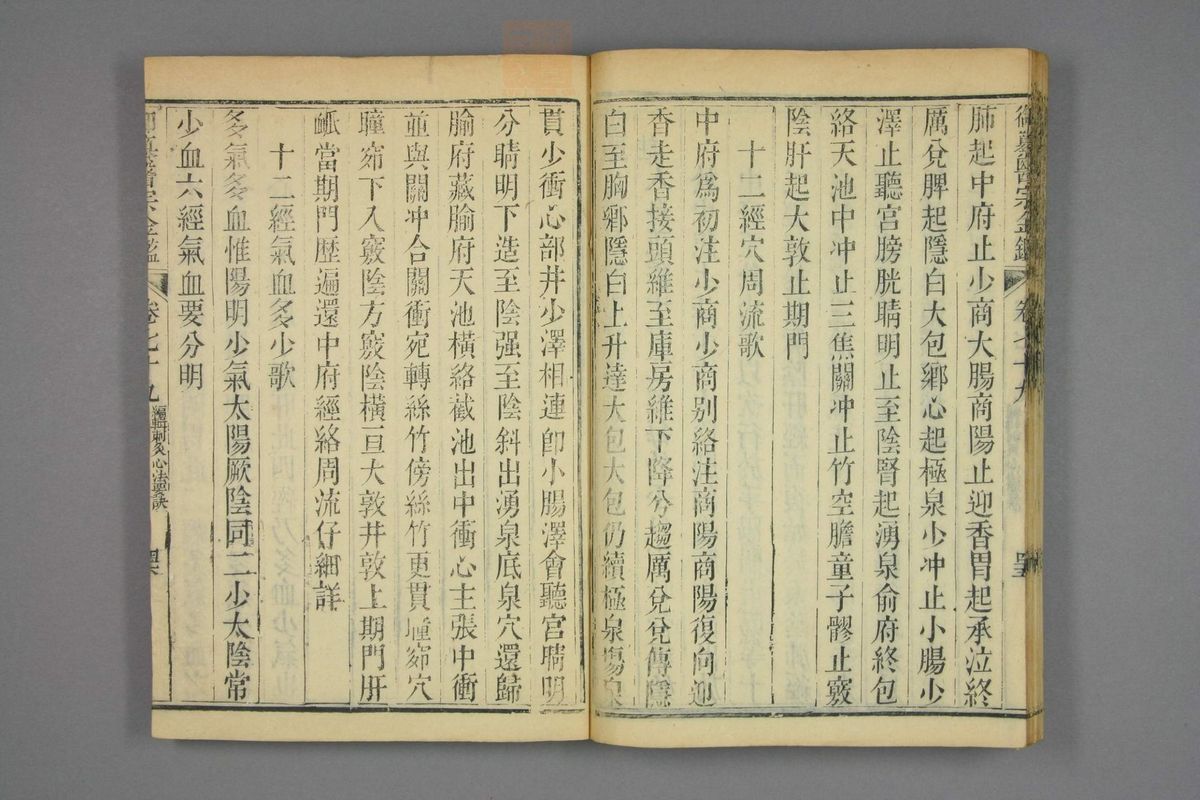 御纂醫宗金鑑 卷七十九
肺起中府止少商大腸商陽止迎香胃起承泣終
厲兌脾起隱白大包鄉心起極泉少冲止小腸少
澤止聽宮膀胱睛明止至陰腎起湧泉俞府終包
絡天池中冲止三焦關冲止竹空膽童子髎止竅
陰肝起大敦止期門
十二經穴周流歌
中府爲初注少商少商别絡注商陽商陽復向迎
香走香接頭維至庫房維下降兮趨厲兌兌傳隱
白至胸鄉隱白上升達大包大包仍續極泉塲泉
貫少衝心部井少澤相連卽小腸澤會聽宮睛明
分睛明下造至陰强至陰斜出湧泉底泉穴還歸
腧府藏腧府天池橫絡截池出中衝心主張中衝
並與關冲合關衝宛轉絲竹傍絲竹更貫瞳窌穴
瞳窌下入竅陰方竅陰橫亘大敦井敦上期門肝
瓡當期門歷遍還中府經絡周流仔細詳
十二經氣血多少歌
多氣多血惟陽明少氣太陽厥陰同二少太陰常
少血六經氣血要分明
御纂醫宗金鑑 卷七十九 編輯刺灸心法要訣